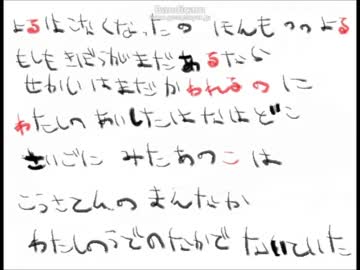 Bandicam
www.bandicam.jp
よるはこなくなったの ほんもののよる
もしもきぼうがまだあるなら
せかいはまだかわれるのに
わたしの あいしたはなはどこ
さいごに みたあのこ は
こうさてんの まんなか
わたしのうでのなかで ないていた